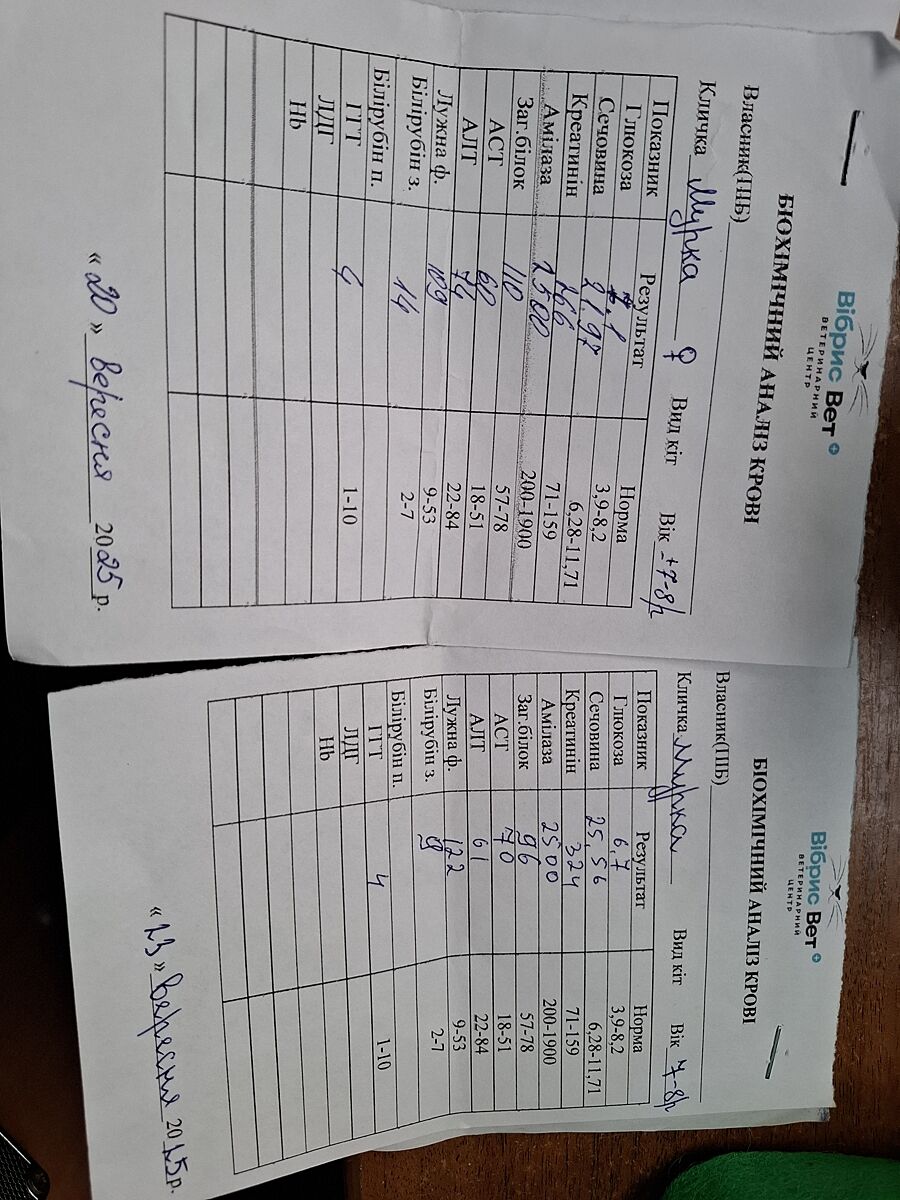 Вібрис Вет
ВЕТЕРИНАРНИЙ
ЦЕНТР
БІОХІМІЧНИЙ АНАЛІЗ КРОВІ
Власник(ПІБ)
Кличка Мурка ♀ Вид кіт Вік ±7-8р
Показник Результат Норма
Глюкоза 7,1 3,9-8,2
Сечовина 21,97 6,28-11,71
Креатинін 266 71-159
Амілаза 2500 200-1900
Заг.білок 110 57-78
АСТ 60 18-51
АЛТ 74 22-84
Лужна ф. 109 9-53
Білірубін з. 14 2-7
Білірубін п.
ГГТ 4 1-10
ЛДГ
Hb
«20» вересня 2025р.
Вібрис Вет
ВЕТЕРИНАРНИЙ
ЦЕНТР
БІОХІМІЧНИЙ АНАЛІЗ КРОВІ
Власник(ПІБ)
Кличка Мурка Вид кіт Вік 7-8р
Показник Результат Норма
Глюкоза 6,7 3,9-8,2
Сечовина 25,56 6,28-11,71
Креатинін 324 71-159
Амілаза 2500 200-1900
Заг.білок 96 57-78
АСТ 70 18-51
АЛТ 61 22-84
Лужна ф. 122 9-53
Білірубін з. 2-7
Білірубін п.
ГГТ 4 1-10
ЛДГ
Hb
«23» вересня 2025р.